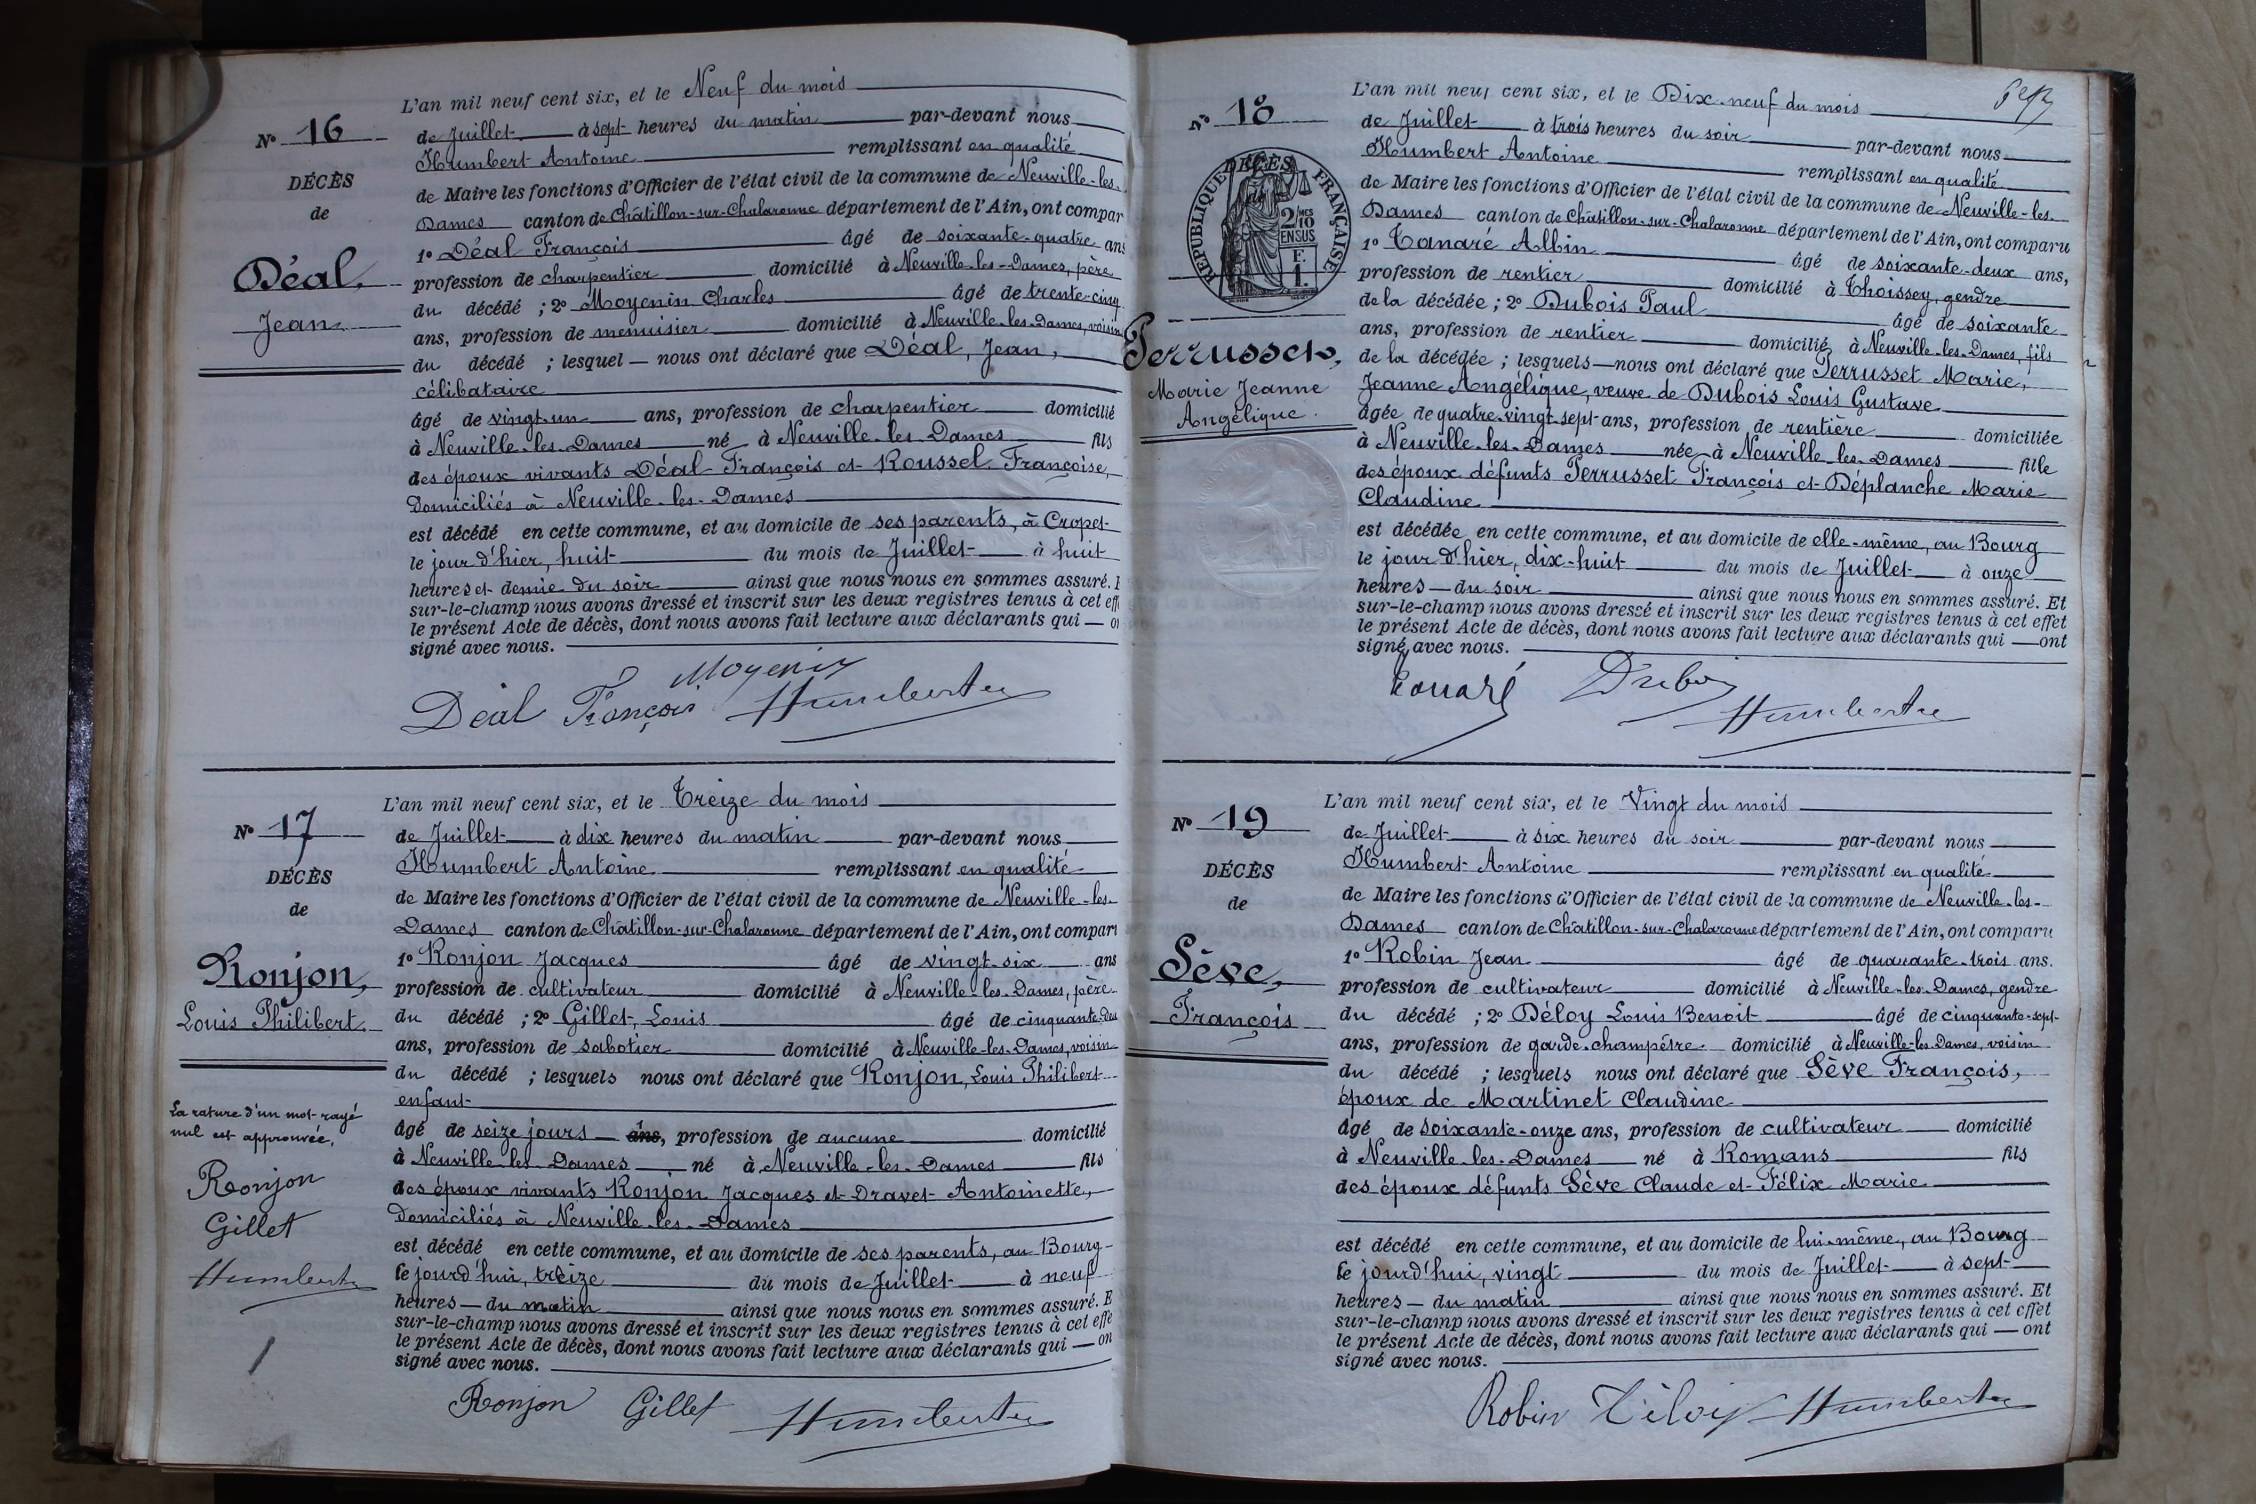 L'an mil neuf cent six, et le Neuf du mois
Nº 16
de Juillet à sept heures du matin par-devant nous
Humbert Antoine remplissant en qualité
DÉCÈS
de Maire les fonctions d'Officier de l'état civil de la commune de Neuville-les-
de
Dames canton de Châtillon-sur-Chalaronne département de l'Ain, ont compar
1º Déal François âgé de soixante-quatre ans
Déal,
profession de charpentier domicilié à Neuville-les-Dames, père
du décédé ; 2º Moyenin Charles âgé de trente-cinq
Jean
ans, profession de menuisier domicilié à Neuville-les-Dames, voisin
du décédé ; lesquel — nous ont déclaré que Déal, Jean,
célibataire
âgé de vingt-un ans, profession de charpentier domicilié
à Neuville-les-Dames né à Neuville-les-Dames fils
des époux vivants Déal François et Roussel Françoise,
domiciliés à Neuville-les-Dames
est décédé en cette commune, et au domicile de ses parents, à Cropet
le jour d'hier, huit du mois de Juillet à huit
heures et demie du soir ainsi que nous nous en sommes assuré. E
sur-le-champ nous avons dressé et inscrit sur les deux registres tenus à cet eff
le présent Acte de décès, dont nous avons fait lecture aux déclarants qui — on
signé avec nous.
Moyenin
Déal François Humbert
L'an mil neuf cent six, et le Treize du mois
Nº 17
de Juillet à dix heures du matin par-devant nous
Humbert Antoine remplissant en qualité
DÉCÈS
de Maire les fonctions d'Officier de l'état civil de la commune de Neuville-les-
de
Dames canton de Châtillon-sur-Chalaronne département de l'Ain, ont compar
1º Ronjon Jacques âgé de vingt-six ans
Ronjon,
profession de cultivateur domicilié à Neuville-les-Dames, père
Louis Philibert
du décédé ; 2º Gillet, Louis âgé de cinquante-deux
ans, profession de sabotier domicilié à Neuville-les-Dames, voisin
du décédé ; lesquels nous ont déclaré que Ronjon, Louis Philibert
enfant
La rature d'un mot rayé
nul est approuvée,
Ronjon
Gillet
Humbert
âgé de seize jours — ans, profession de aucune domicilié
à Neuville-les-Dames né à Neuville-les-Dames fils
des époux vivants Ronjon Jacques et Dravet Antoinette,
domiciliés à Neuville-les-Dames
est décédé en cette commune, et au domicile de ses parents, au Bourg
le jourd'hui, treize du mois de Juillet à neuf
heures — du matin ainsi que nous nous en sommes assuré. E
sur-le-champ nous avons dressé et inscrit sur les deux registres tenus à cet effe
le présent Acte de décès, dont nous avons fait lecture aux déclarants qui — on
signé avec nous.
Ronjon Gillet Humbert
L'an mil neuf cent six, et le Dix-neuf du mois
Nº 18
de Juillet à trois heures du soir par-devant nous
Humbert Antoine remplissant en qualité
DÉCÈS
de
RÉPUBLIQUE FRANÇAISE
2/10 MES
EN SUS
F.
1.
de Maire les fonctions d'Officier de l'état civil de la commune de Neuville-les-
Dames canton de Châtillon-sur-Chalaronne département de l'Ain, ont comparu
1º Tanaré Albin âgé de soixante-deux ans,
profession de rentier domicilié à Thoissey, gendre
de la décédée ; 2º Dubois Paul âgé de soixante
Perrusset,
Marie Jeanne
Angélique.
ans, profession de rentier domicilié à Neuville-les-Dames, fils
de la décédée ; lesquels — nous ont déclaré que Perrusset Marie,
Jeanne Angélique, veuve de Dubois Louis Gustave
âgée de quatre-vingt-sept ans, profession de rentière domiciliée
à Neuville-les-Dames née à Neuville-les-Dames fille
des époux défunts Perrusset François et Déplanche Marie
Claudine
est décédée en cette commune, et au domicile de elle-même, au Bourg
le jour d'hier, dix-huit du mois de Juillet à onze
heures — du soir ainsi que nous nous en sommes assuré. Et
sur-le-champ nous avons dressé et inscrit sur les deux registres tenus à cet effet
le présent Acte de décès, dont nous avons fait lecture aux déclarants qui — ont
signé avec nous.
Dubois
Humbert
L'an mil neuf cent six, et le Vingt du mois
Nº 19
de Juillet à six heures du soir par-devant nous
Humbert Antoine remplissant en qualité
DÉCÈS
de Maire les fonctions d'Officier de l'état civil de la commune de Neuville-les-
de
Dames canton de Châtillon-sur-Chalaronne département de l'Ain, ont comparu
1º Robin Jean âgé de quarante-trois ans.
Sève,
profession de cultivateur domicilié à Neuville-les-Dames, gendre
François
du décédé ; 2º Déloy Louis Benoit âgé de cinquante-sept
ans, profession de garde-champêtre domicilié à Neuville-les-Dames, voisin
du décédé ; lesquels nous ont déclaré que Sève François,
époux de Martinet Claudine
âgé de soixante-onze ans, profession de cultivateur domicilié
à Neuville-les-Dames né à Romans fils
des époux défunts Sève Claude et Félix Marie
est décédé en cette commune, et au domicile de lui-même, au Bourg
le jourd'hui, vingt du mois de Juillet à sept
heures — du matin ainsi que nous nous en sommes assuré. Et
sur-le-champ nous avons dressé et inscrit sur les deux registres tenus à cet effet
le présent Acte de décès, dont nous avons fait lecture aux déclarants qui — ont
signé avec nous.
Robin Déloy Humbert